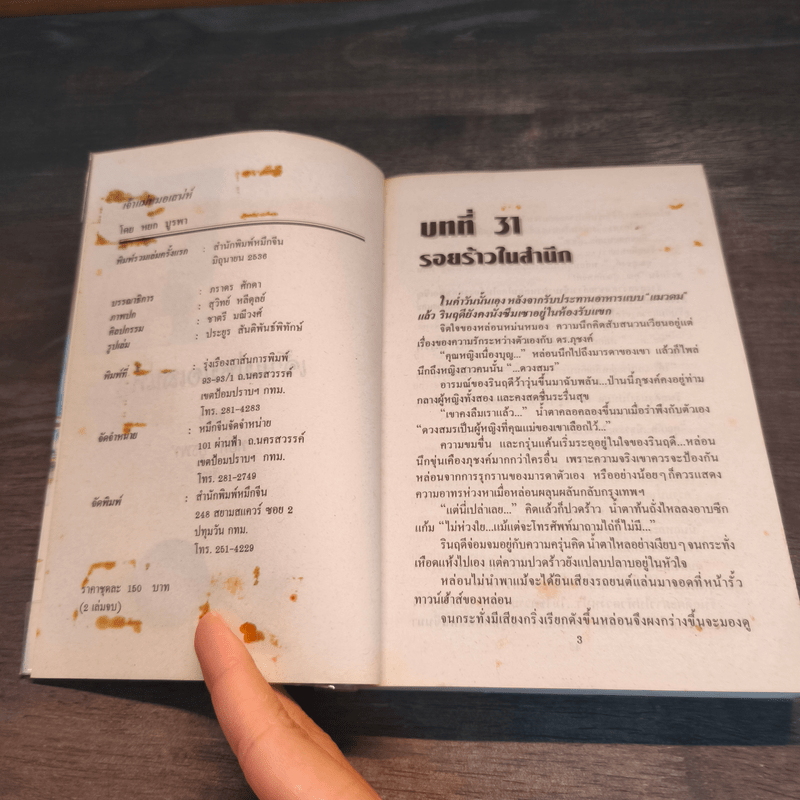 เจ้าแม่หมอเสน่ห์
โดย หยก บูรพา
พิมพ์รวมเล่มครั้งแรก : สำนักพิมพ์หมึกจีน
มิถุนายน 2536
บรรณาธิการ : ภราดร ศักดา
ภาพปก : สุวิทย์ หลีดุลย์
ศิลปกรรม : ชาตรี มณีวงศ์
รูปเล่ม : ประยูร สันติพันธ์พิทักษ์
พิมพ์ที่ : รุ่งเรืองสาส์นการพิมพ์
93-93/1 ถ.นครสวรรค์
เขตป้อมปราบฯ กทม.
โทร. 281-4283
จัดจำหน่าย : หมึกจีนจัดจำหน่าย
101 ผ่านฟ้า ถ.นครสวรรค์
เขตป้อมปราบฯ กทม.
โทร. 281-2749
จัดพิมพ์ : สำนักพิมพ์หมึกจีน
248 สยามสแควร์ ซอย 2
ปทุมวัน กทม.
โทร. 251-4229
ราคาชุดละ 150 บาท
(2 เล่มจบ)
บทที่ 31
รอยร้าวในสำนึก
ในค่ำวันนั้นเอง หลังจากรับประทานอาหารแบบ "แมวดม"
แล้ว รินฤดียังคงนั่งซึมเซาอยู่ในห้องรับแขก
จิตใจของหล่อนหม่นหมอง ความนึกคิดสับสนวนเวียนอยู่แต่
เรื่องของความรักระหว่างตัวเองกับ ดร.ภุชงค์
"คุณหญิงเนื่องบุญ..." หล่อนนึกไปถึงมารดาของเขา แล้วก็ไพล่
นึกถึงหญิงสาวคนนั้น "...ดวงสมร"
อารมณ์ของรินฤดีว้าวุ่นขึ้นมาฉับพลัน...ป่านนี้ภุชงค์คงอยู่ท่าม
กลางผู้หญิงทั้งสอง และคงสดชื่นระรื่นสุข
"เขาคงลืมเราแล้ว..." น้ำตาคลอคลองขึ้นมาเมื่อรำพึงกับตัวเอง
"ดวงสมรเป็นผู้หญิงที่คุณแม่ของเขาเลือกไว้..."
ความขมขื่น และกรุ่นแค้นเริ่มระอุอยู่ในใจของรินฤดี...หล่อน
นึกขุ่นเคืองภุชงค์มากกว่าใครอื่น เพราะความจริงเขาควรจะป้องกัน
หล่อนจากการรุกรานของมารดาตัวเอง หรืออย่างน้อยๆ ก็ควรแสดง
ความอาทรห่วงหาเมื่อหล่อนผลุนผลันกลับกรุงเทพฯ
"แต่นี่เปล่าเลย..." คิดแล้วก็ปวดร้าว น้ำตาพลันถั่งไหลลงอาบซีก
แก้ม "ไม่ห่วงใย...แม้แต่จะโทรศัพท์มาถามไถ่ก็ไม่มี..."
รินฤดีจ่อมจมอยู่กับความครุ่นคิด น้ำตาไหลอย่างเงียบๆ จนกระทั่ง
เหือดแห้งไปเอง แต่ความปวดร้าวยังแปลบปลาบอยู่ในหัวใจ
หล่อนไม่นำพาแม้จะได้ยินเสียงรถยนต์แล่นมาจอดที่หน้ารั้ว
ทาวน์เฮ้าส์ของหล่อน
จนกระทั่งมีเสียงกริ่งเรียกดังขึ้นหล่อนจึงผงกร่างขึ้นชะมองดู
3